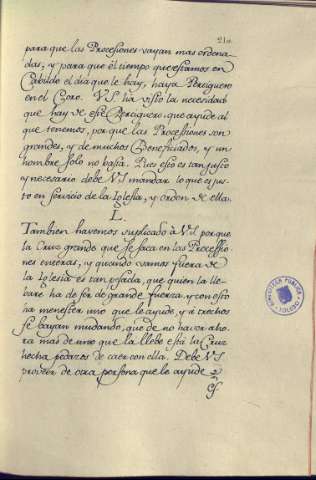 210
para que las Procesiones vayan mas ordena-
das, y para que el tiempo que estamos en
Cabildo el dia que le hay, haya Perciguero
en el Coro. V.S. ha visto la necesidad
que hay de este Perciguero que ayude al
que tenemos, por que las Processiones son
grandes, y de muchos Beneficiados, y un
hombre solo no basta. Pues esto es tan justo
y necesario debe V.S. mandar lo que es jus-
to en servicio de la Iglesia, y orden de ella.
L
Tambien havemos suplicado à V.S. por que
la Cruz grande que se saca en las Processio-
nes enteras, y quando vamos fuera de
la Iglesia es tan pesada, que quien la lle-
bare ha de ser de grande fuerza, y con esto
ha menester uno que le ayude, y à trechos
se vayan mudando, que de no haver aho-
ra mas de uno que la llebe està la Cruz
hecha pedazos de caer con ella. Debe V.S.
proveer de otra persona que le ayude
BIBLIOTECA PUBLICA
TOLEDO